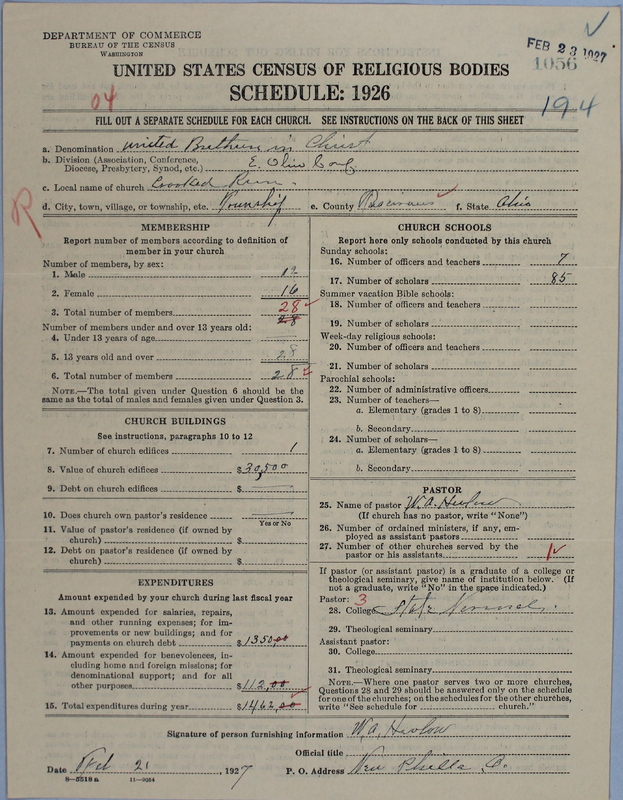 DEPARTMENT OF COMMERCE
BUREAU OF THE CENSUS
WASHINGTON
FEB 23 1927
1056
UNITED STATES CENSUS OF RELIGIOUS BODIES
SCHEDULE: 1926
04
194
FILL OUT A SEPARATE SCHEDULE FOR EACH CHURCH. SEE INSTRUCTIONS ON THE BACK OF THIS SHEET
a. Denomination United Brethren in Christ
b. Division (Association, Conference,
Diocese, Presbytery, Synod, etc.) E. Ohio Conf
c. Local name of church Crooked Run.
d. City, town, village, or township, etc. Township e. County Tuscarawas f. State Ohio
R
MEMBERSHIP
Report number of members according to definition of
member in your church
Number of members, by sex:
1. Male 12
2. Female 16
28
3. Total number of members 28
Number of members under and over 13 years old:
4. Under 13 years of age
5. 13 years old and over 28
6. Total number of members 28
NOTE.—The total given under Question 6 should be the
same as the total of males and females given under Question 3.
CHURCH BUILDINGS
See instructions, paragraphs 10 to 12
7. Number of church edifices 1
8. Value of church edifices $30,500
9. Debt on church edifices $
10. Does church own pastor's residence
Yes or No
11. Value of pastor's residence (if owned by
church) $
12. Debt on pastor's residence (if owned by
church) $
EXPENDITURES
Amount expended by your church during last fiscal year
13. Amount expended for salaries, repairs,
and other running expenses; for im-
provements or new buildings; and for
payments on church debt $1350,00
14. Amount expended for benevolences, in-
cluding home and foreign missions; for
denominational support; and for all
other purposes $112,00
15. Total expenditures during year $1462,00
CHURCH SCHOOLS
Report here only schools conducted by this church
Sunday schools:
16. Number of officers and teachers 7
17. Number of scholars 85
Summer vacation Bible schools:
18. Number of officers and teachers
19. Number of scholars
Week-day religious schools:
20. Number of officers and teachers
21. Number of scholars
Parochial schools:
22. Number of administrative officers
23. Number of teachers—
a. Elementary (grades 1 to 8)
b. Secondary
24. Number of scholars—
a. Elementary (grades 1 to 8)
b. Secondary
PASTOR
25. Name of pastor W. A.
(If church has no pastor, write "None")
26. Number of ordained ministers, if any, em-
ployed as assistant pastors
27. Number of other churches served by the
pastor or his assistants 1
If pastor (or assistant pastor) is a graduate of a college or
theological seminary, give name of institution below. (If
not a graduate, write "No" in the space indicated.)
Pastor: 3
28. College State Normal.
29. Theological seminary
Assistant pastor:
30. College
31. Theological seminary
NOTE.—Where one pastor serves two or more churches,
Questions 28 and 29 should be answered only on the schedule
for one of the churches; on the schedules for the other churches,
write "See schedule for church."
Signature of person furnishing information W. A.
Official title
Date Feb 21, 1927 P. O. Address New Phila O.
8-3518a 11-9054